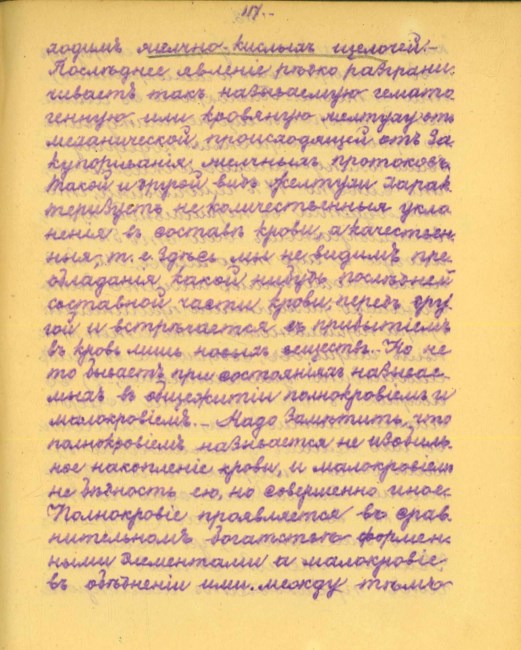 ходимъ желчно-кислыхъ щелочей.-
Послѣднее явленіе рѣзко разграни-
чиваетъ такъ называемую гемато
генную или кровяную желтуху отъ
механической, происходящей отъ за
купориванія желчныхъ протоковъ,
такой и другой видъ желтухи харак
теризуютъ не количественныя укло
ненія въ составѣ крови, а качествен-
ныя, т. е. здѣсь мы не видимъ пре
обладанія какой нибудь
составной части крови передъ дру
гой и встрѣчается съ прибытіемъ
въ кровь лишь новыхъ веществъ.- Но не
то бываетъ при состояніяхъ называе-
мыхъ въ общежитіи полнокровіемъ и
малокровіемъ.- Надо замѣтить, что
полнокровіемъ называется не изобиль-
ное накопленіе крови, и малокровіемъ
не бѣдность ею, но совершенно иное.
Полнокровіе проявляется въ срав
нительномъ богатствѣ формен-
ными элементами а малокровіе
въ обѣдненіи ими. между тѣмъ